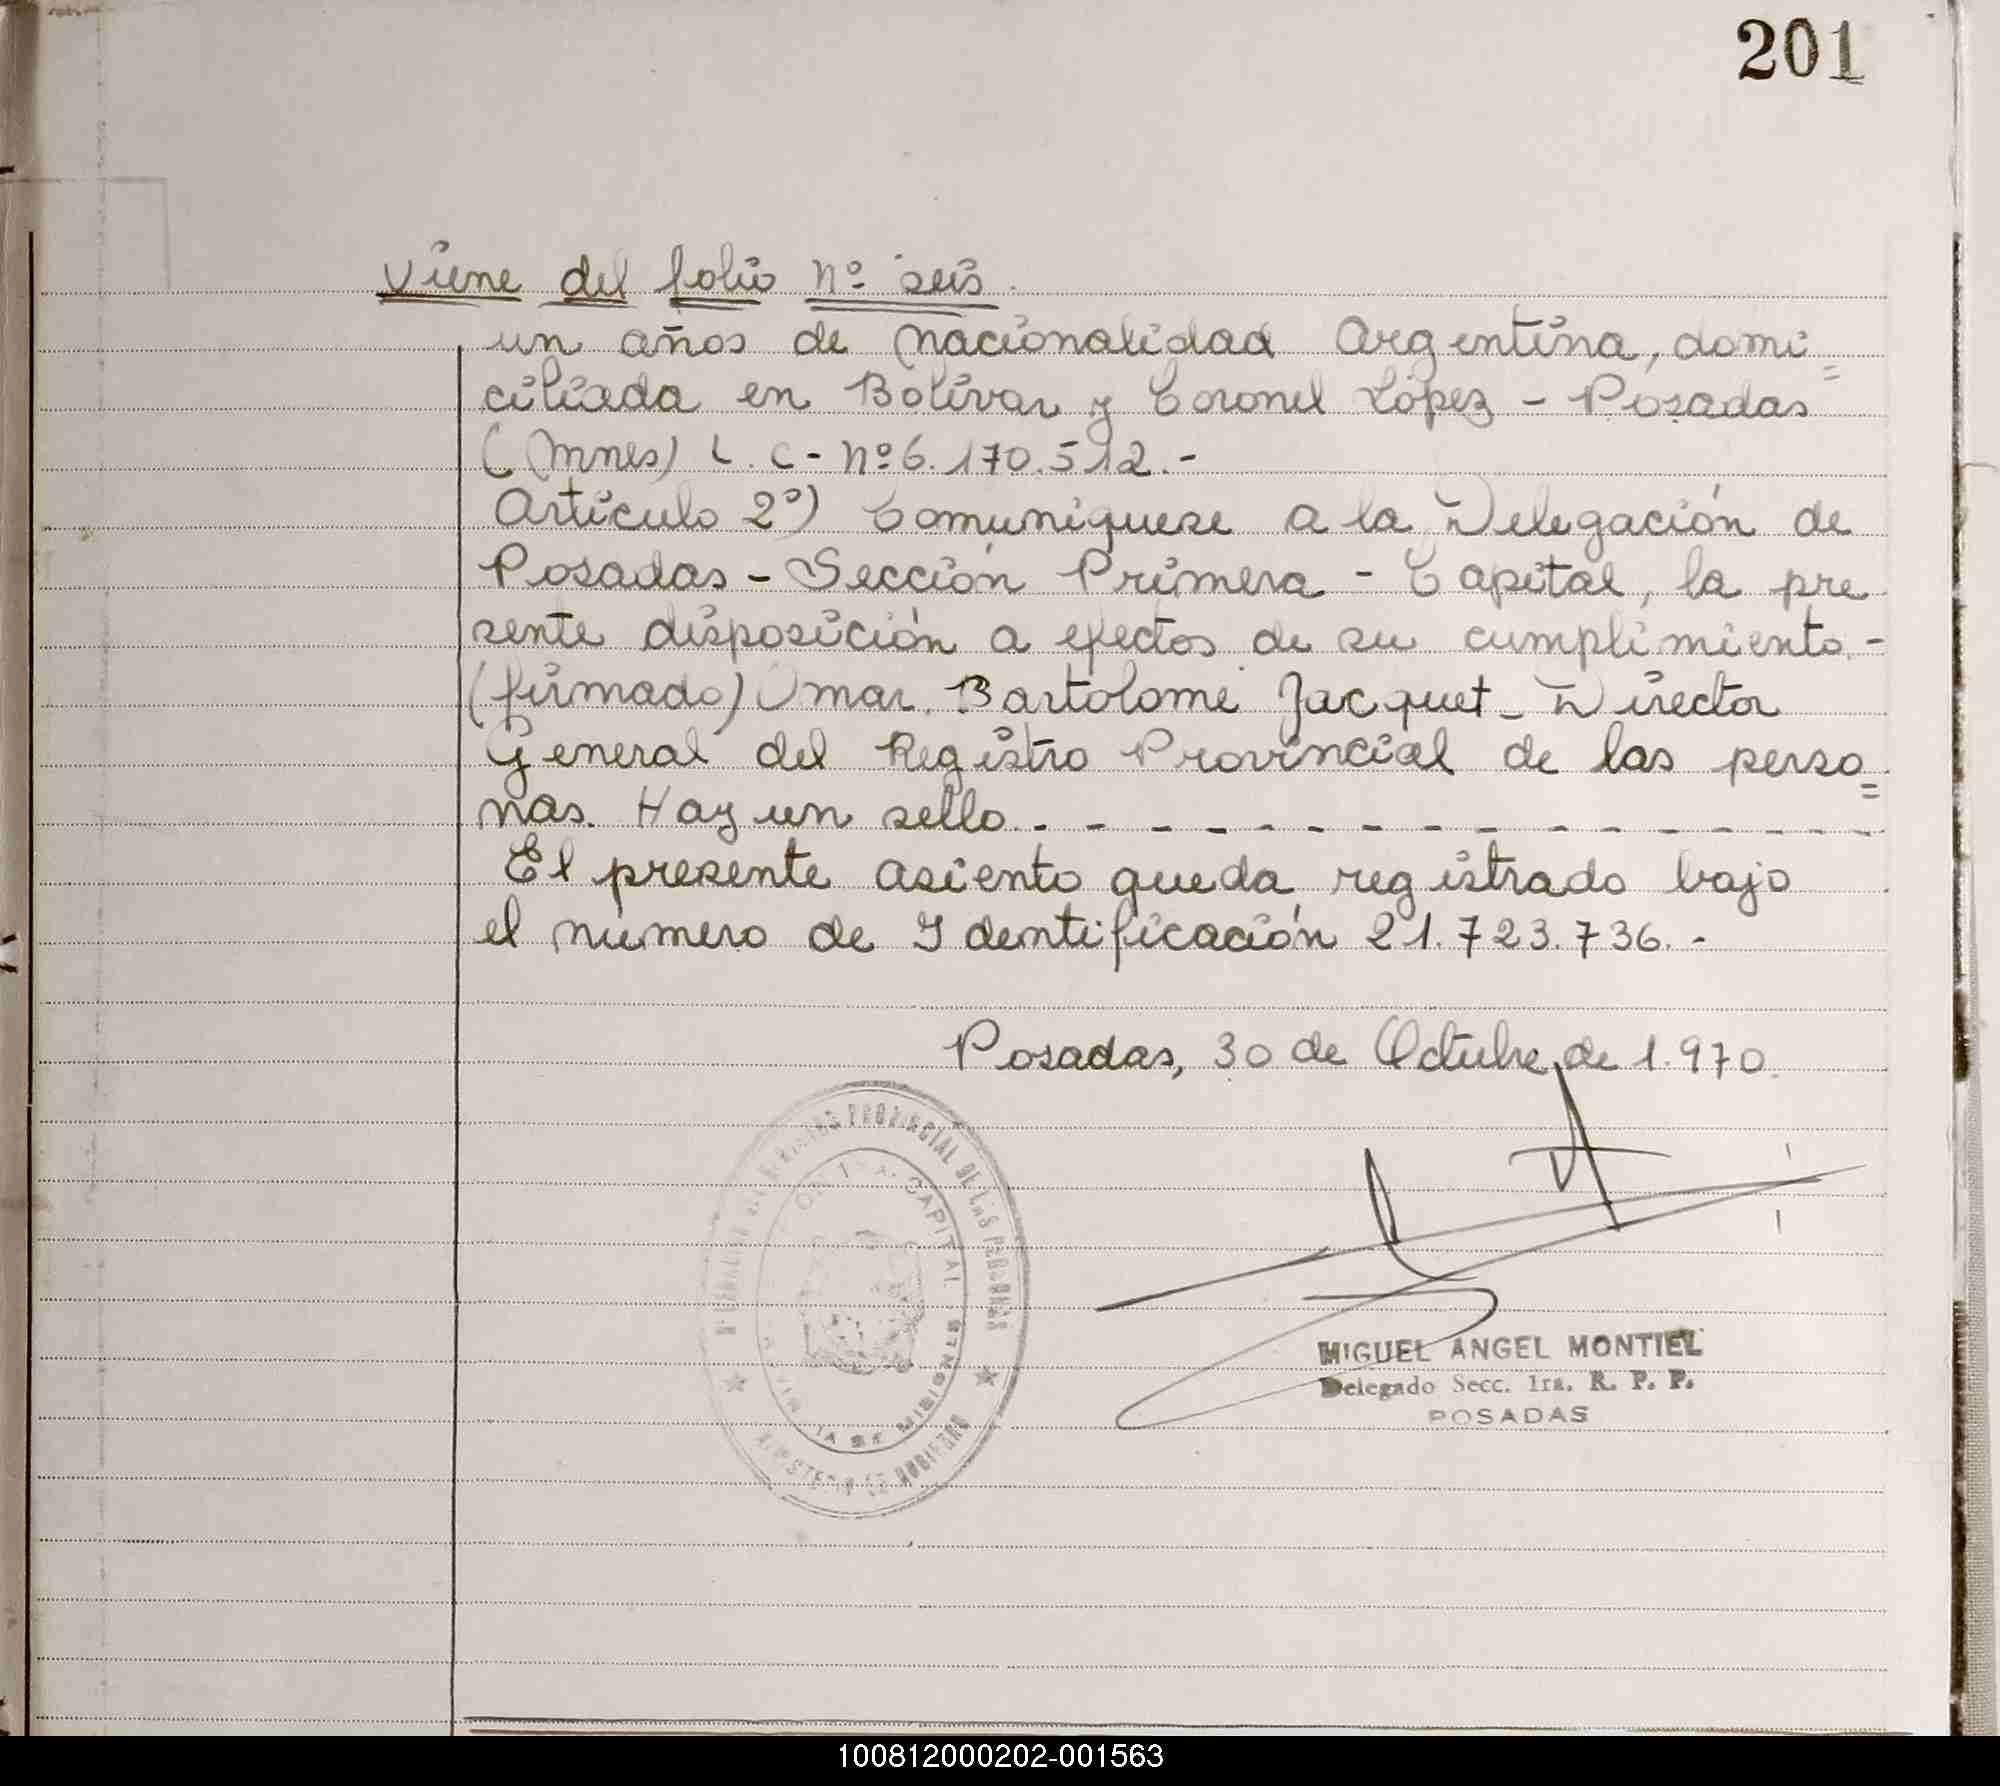 201
Viene del folio Nº seis.
un años de nacionalidad Argentina, domi=
ciliada en Bolívar y Coronel López - Posadas
(Mnes) L. C- Nº 6.170.512.-
Artículo 2º) Comuníquese a la Delegación de
Posadas - Sección Primera - Capital, la pre
sente disposición a efectos de su cumplimiento.-
(firmado) Omar Bartolomé Jacquet - Director
General del Registro Provincial de las perso=
nas. Hay un sello. - - - - - - - - - - - - - - -
El presente asiento queda registrado bajo
el número de Identificación 21.723.736.-
Posadas, 30 de Octubre de 1.970.
PROVINCIAL DE LAS PERSONAS
CAPITAL
MISIONES
MINISTERIO DE GOBIERNO
MIGUEL ANGEL MONTIEL
Delegado Secc. 1ra. R. P. P.
POSADAS
100812000202-001563